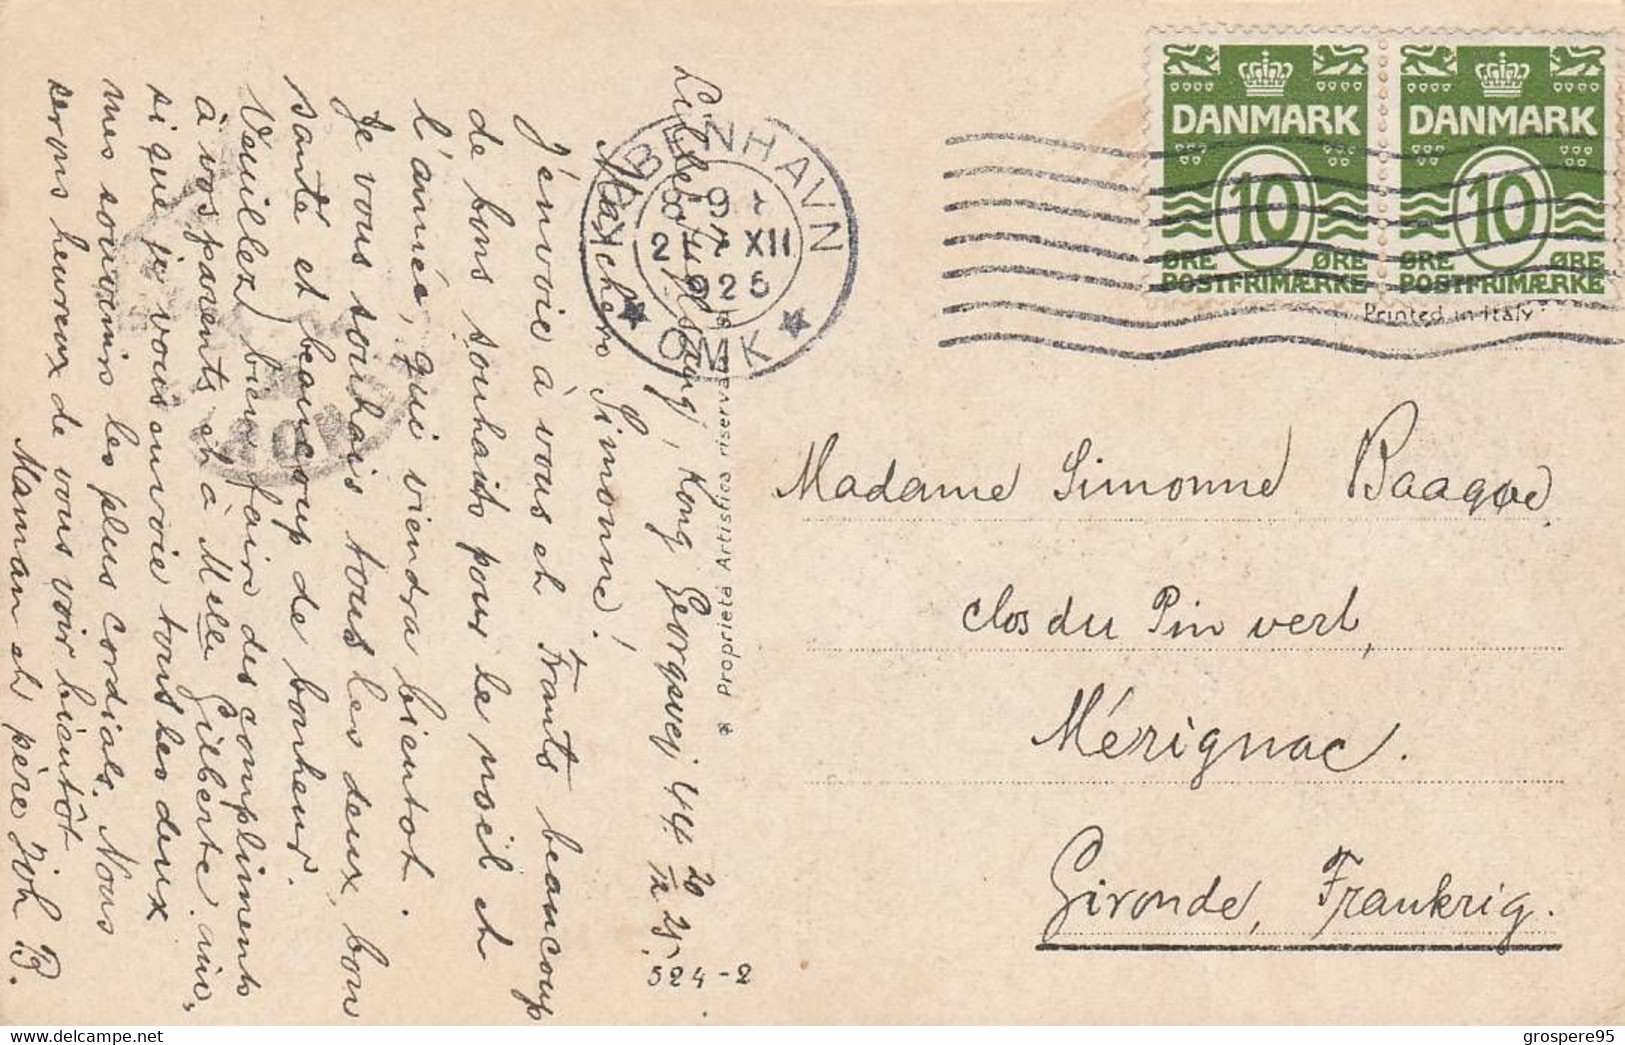 Lillebo, Kong Georgsvej 44. 20/12 25.
Ma chère Simonne!
J'envoie à vous et Frants beaucoup
de bons souhaits pour le noël et
l'année, qui viendra bientot.
Je vous souhais tous les deux, bon
santé et beaucoup de bonheur.
Veuillez bien faire des compliments
à vos parents et à Melle Gilberte ain,
si que je vous envoie tous les deux
mes souvenirs les plus cordials. Nous
serons heureux de vous voir bientôt
Maman et père Joh B.
524-2
* Proprietà Artistica riservata
KØBENHAVN
2 XII
925
OMK
DANMARK
10
ØRE ØRE
POSTFRIMÆRKE
DANMARK
10
ØRE ØRE
POSTFRIMÆRKE
Printed in Italy
Madame Simonne Baagøe
clos du Pin vert,
Mérignac.
Gironde, Frankrig.
© delcampe.net
grospere95